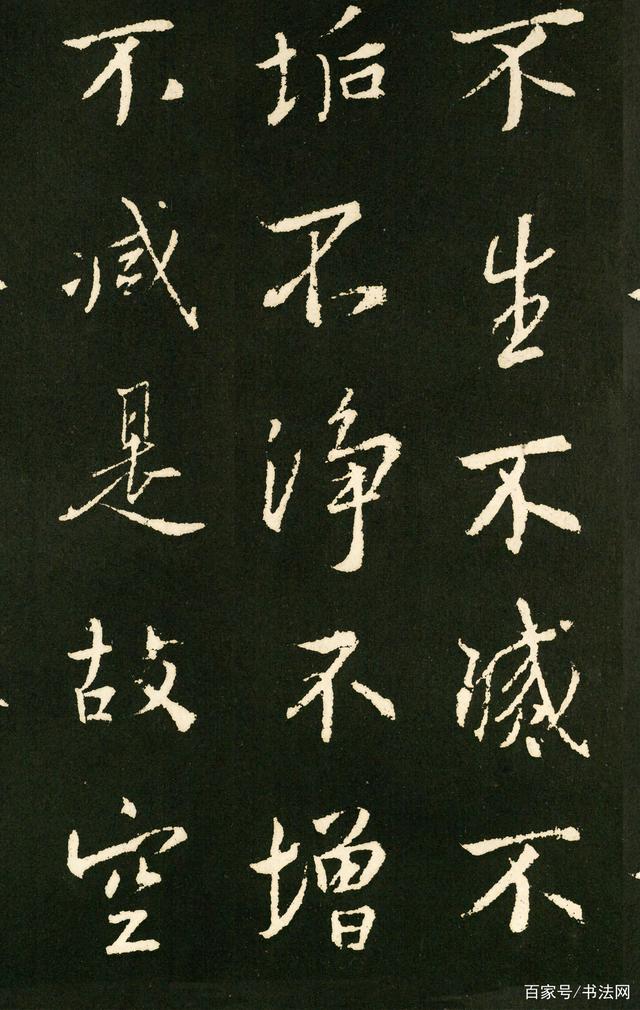 不生不滅不
垢不淨不增
不減是故空
百家号/书法网